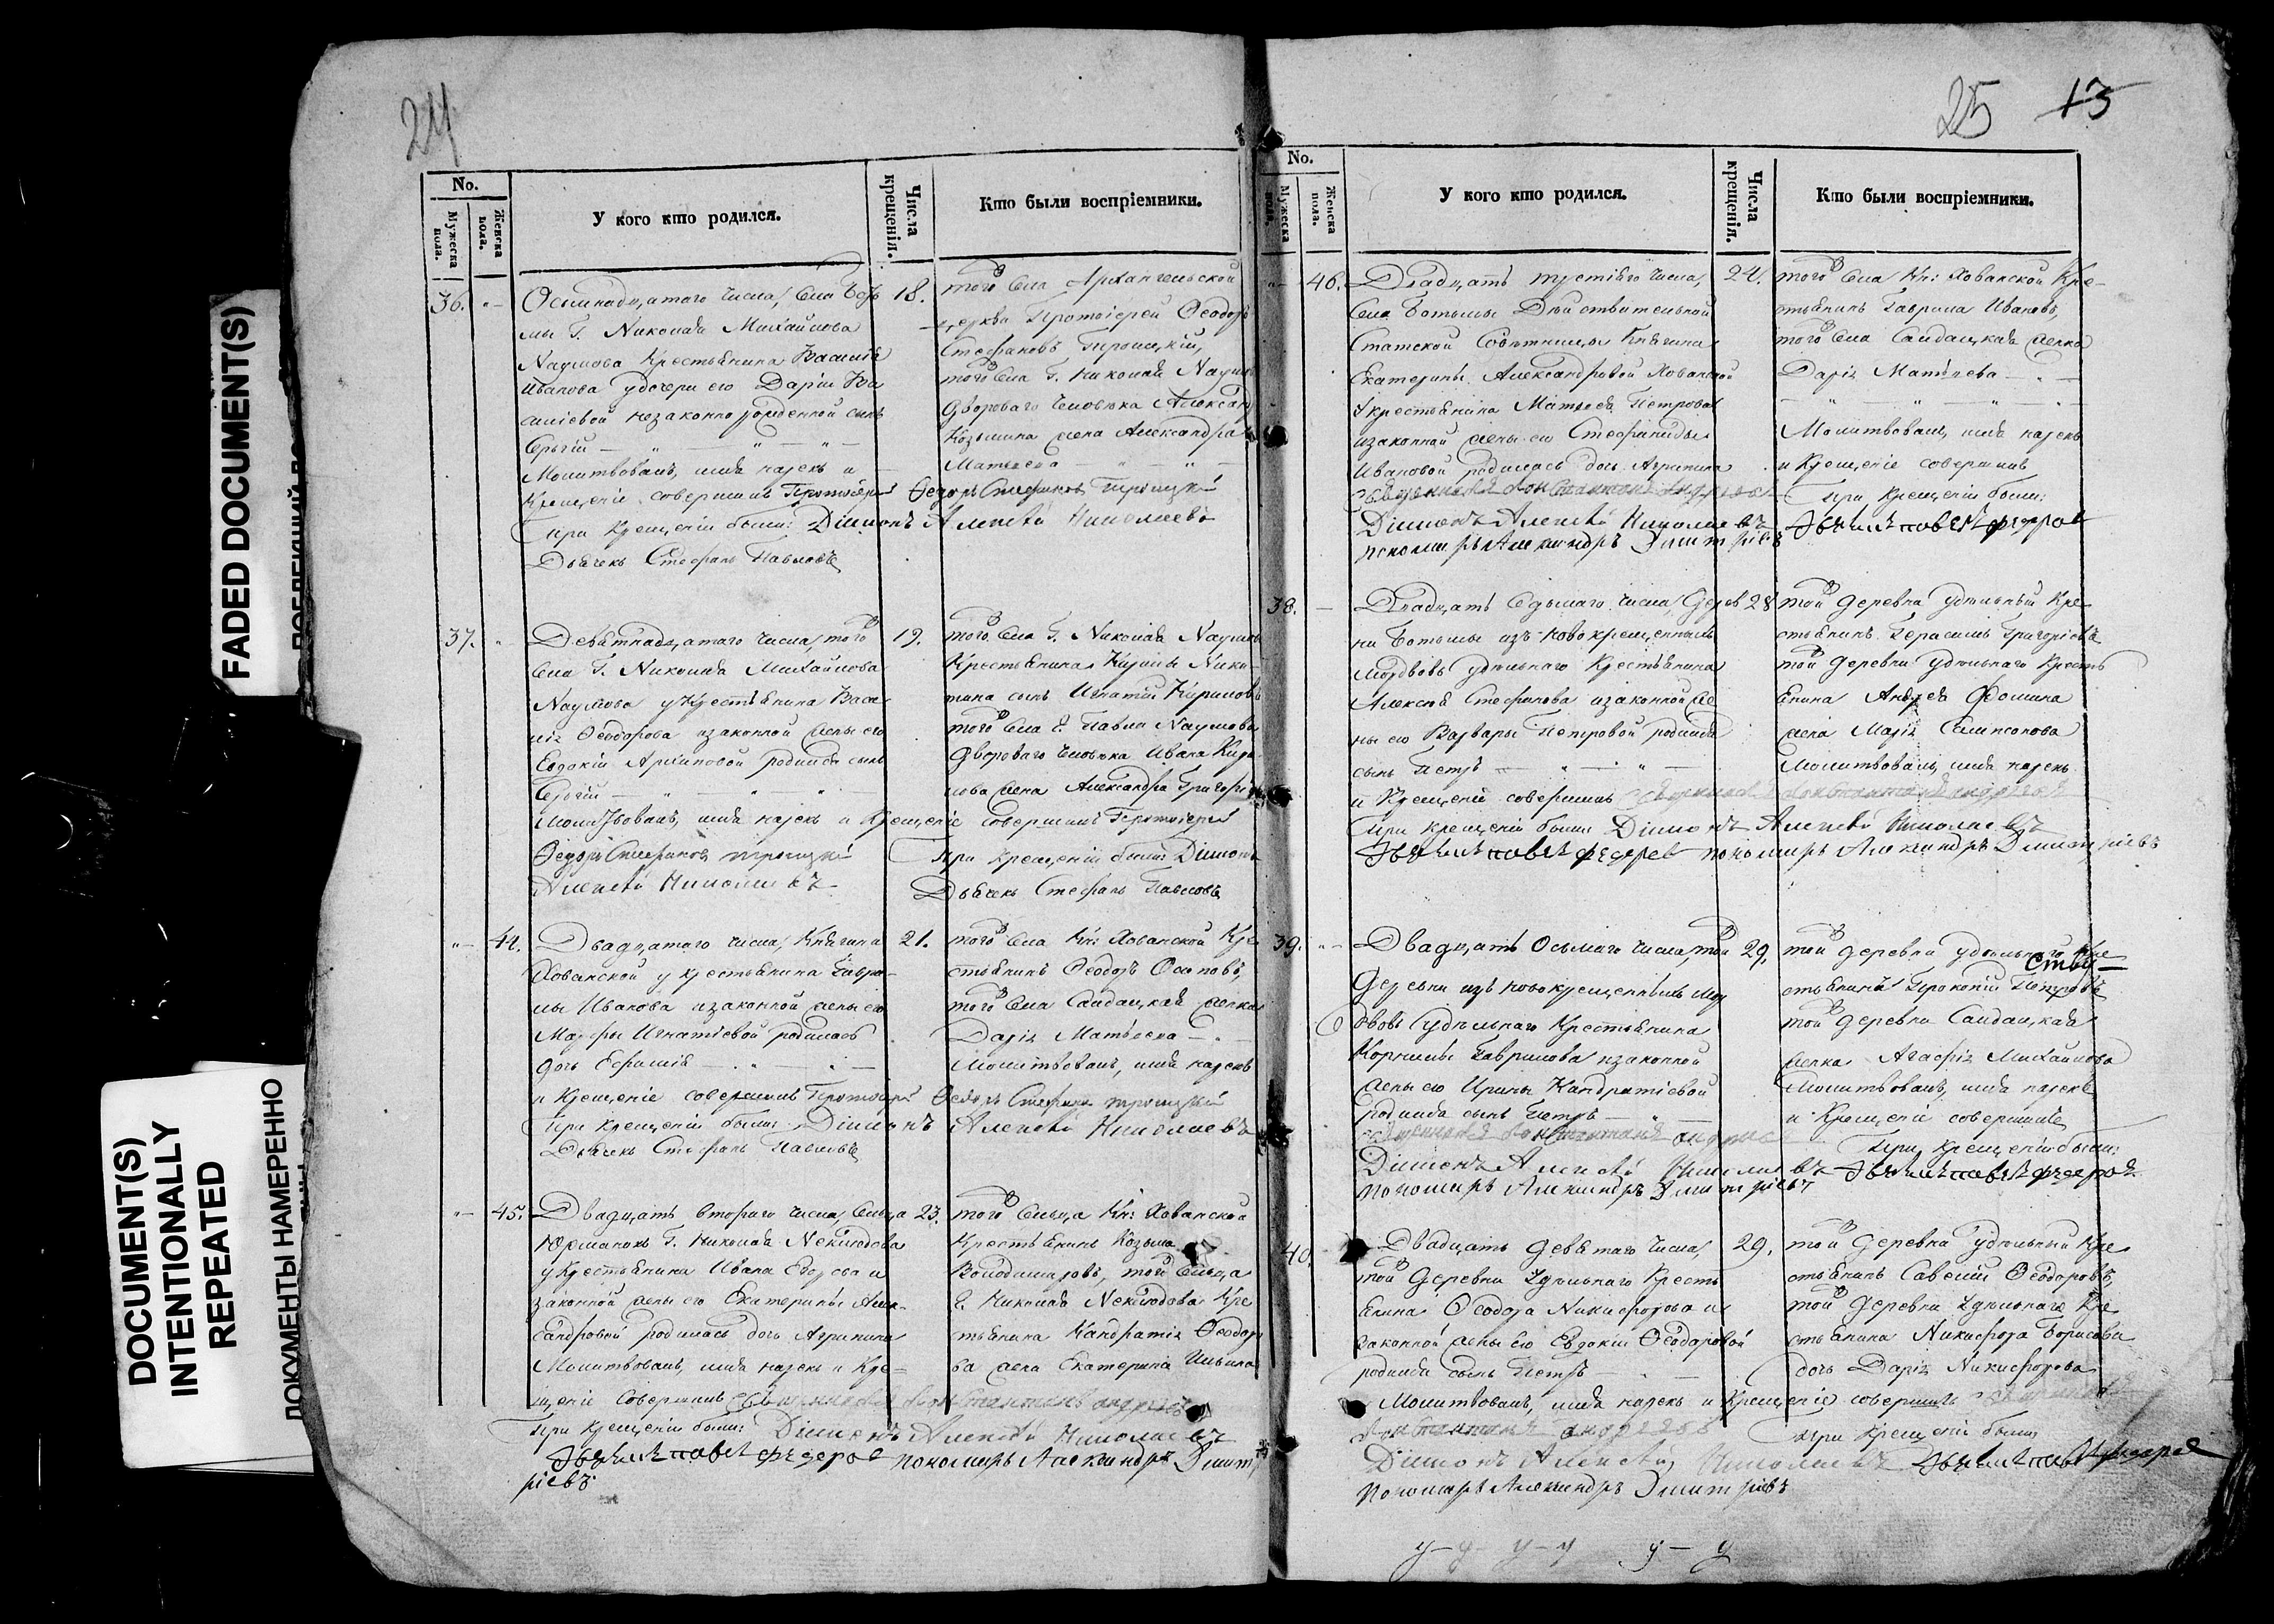 24
No.
Мужеска пола.
Женска пола.
У кого кто родился.
Числа крещенія.
Кто были воспріемники.
36. „ —
Осмнадцатаго числа, села Боть
мы Г. Николая Михайлова
Наумова Крестьянина Василія
Иванова у дочери его Даріи Ва
силіевой незаконнорожденной сынъ
Сергій — „ — „ — „ —
Молитвовалъ, имя нарекъ и
Крещеніе совершилъ Протоіерей Ѳедоръ Стефановъ Троицкій
При крещеніи были: Діаконъ Алексѣй Николаевъ
Дьячекъ Стефанъ Павловъ
18.
того села Архангельской
церкви Протоіерей Ѳеодоръ
Стефановъ Троицкій,
того села Г. Николая Наумо
двороваго человѣка Алексан
Козьмина жена Александра
Матвѣева — „ —
37. „
Девятнадцатаго числа, того
села Г. Николая Михайлова
Наумова у Крестьянина Васи
лія Ѳеодорова и законной жены его
Евдокіи Архиповой родился сынъ
Сергій — „ — „ — „ —
Молитвовалъ, имя нарекъ и Крещеніе совершилъ Протоіерей
Ѳедоръ Стефановъ Троицкій При крещеніи были: Діаконъ
Алексѣй Николаевъ Дьячекъ Стефанъ Павловъ
19.
того села Г. Николая Наумов
Крестьянина Кирилы Ники
тина сынъ Игнатій Кириловъ
того села Г. Павла Наумова
двороваго человѣка Ивана Кири
лова жена Александра Григорі
„ — 44.
Двадцатаго числа, Княгини
Хованской у крестьянина Гаври
лы Иванова и законной жены его
Марфы Игнатіевой родилась
дочь Евфимія — „ — „ —
и Крещеніе совершилъ Протоіерей Ѳедоръ Стефановъ Троицкій
При крещеніи были: Діаконъ Алексѣй Николаевъ
Дьячекъ Стефанъ Павловъ
21.
того села Кн: Хованской Кре
стьянинъ Ѳеодоръ Осиповъ,
того села Салдацкая женка
Дарія Матвѣева — „ —
Молитвовалъ, имя нарекъ
„ — 45.
Двадцать втораго числа, сельца
Юрманокъ Г. Николая Неклюдова
у Крестьянина Ивана Едорова и
законной жены его Екатерины Алек
сандровой родилась дочь Агрипина
Молитвовалъ, имя нарекъ и Кре=
щеніе совершилъ священникъ Константинъ Андреевъ
При крещеніи были: Діаконъ Алексѣй Николаевъ
Дьячекъ Павелъ Федоров пономарь Александръ Дмит
ріевъ
23.
того сельца Кн: Хованской
Крестьянинъ Козьма
Володимировъ, того сельца
Г. Николая Неклюдова Кре
стьянина Кандратія Ѳеодоро
ва жена Екатерина Ильина
25 13
No.
Мужеска пола.
Женска пола.
У кого кто родился.
Числа крещенія.
Кто были воспріемники.
„ — 46.
Двадцать третіяго числа,
села Ботьмы Дѣйствительной
Статской Совѣтницы Княгини
Екатерины Александровой Хованской
У крестьянина Матвея Петрова
и законной жены его Стефаниды
Ивановой родилась дочь Агрипина
священникъ Константинъ Андреевъ
Діаконъ Алексѣй Николаевъ Дьячекъ Павелъ Федоров
пономарь Александръ Дмитріевъ
24.
того села Кн: Хованской Кре-
стьянинъ Гаврила Ивановъ,
того села Салдацкая женка
Дарія Матвѣева — „ —
— „ — „ — „ —
Молитвовалъ, имя нарекъ
и Крещеніе совершилъ
При крещеніи были:
38. —
Двадцать седьмаго числа, дерев
ни Ботьмы изъ новокрещенныхъ
мордвовъ удѣльнаго Крестьянина
Алексѣя Стефанова и законной же
ны его Варвары Петровой родился
сынъ Петръ — „ — „ —
и Крещеніе совершилъ священникъ Константинъ Андреевъ
При крещеніи были Діаконъ Алексѣй Николаевъ
Дьячекъ Павелъ Федоров пономарь Александръ Дмитріевъ
28
той деревни удѣльный Кре
стьянинъ Герасимъ Григорьевъ
той деревни удѣльнаго Кресть
янина Андрея Фомина
жена Марія Самсонова
Молитвовалъ, имя нарекъ
39. „ —
Двадцать осьмаго числа, той
деревни изъ новокрещенныхъ мор
двовъ Удѣльнаго Крестьянина
Корнилы Гаврилова и законной
жены его Ирины Кандратіевой
родился сынъ Петръ — „ —
священникъ Константинъ Андреевъ
Діаконъ Алексѣй Николаевъ Дьячекъ Павелъ Федоров
пономарь Александръ Дмитріевъ
29.
той деревни удѣльнаго Кре
стьянинъ Прокопій Петровъ
той деревни Салдацкая
женка Агафія Михайлова
Молитвовалъ, имя нарекъ
и Крещеніе совершилъ
При крещеніи были:
40.
Двадцать девятаго числа,
той деревни Удѣльнаго Кресть
янина Ѳеодора Никифорова и
законной жены его Евдокіи Ѳеодоровой
родился сынъ Петръ —
Молитвовалъ, имя нарекъ и Крещеніе совершилъ священникъ
Константинъ Андреевъ при крещеніи были
Діаконъ Алексѣй Николаевъ Дьячекъ Павелъ Федоров
пономарь Александръ Дмитріевъ
29.
той деревни Удѣльный Кре
стьянинъ Савелій Ѳеодоровъ,
той деревни Удѣльнаго Кре
стьянина Никифора Борисова
дочь Дарія Никифорова
FADED DOCUMENT(S)
DOCUMENT(S)
INTENTIONALLY
REPEATED
ДОКУМЕНТЫ НАМЕРЕННО